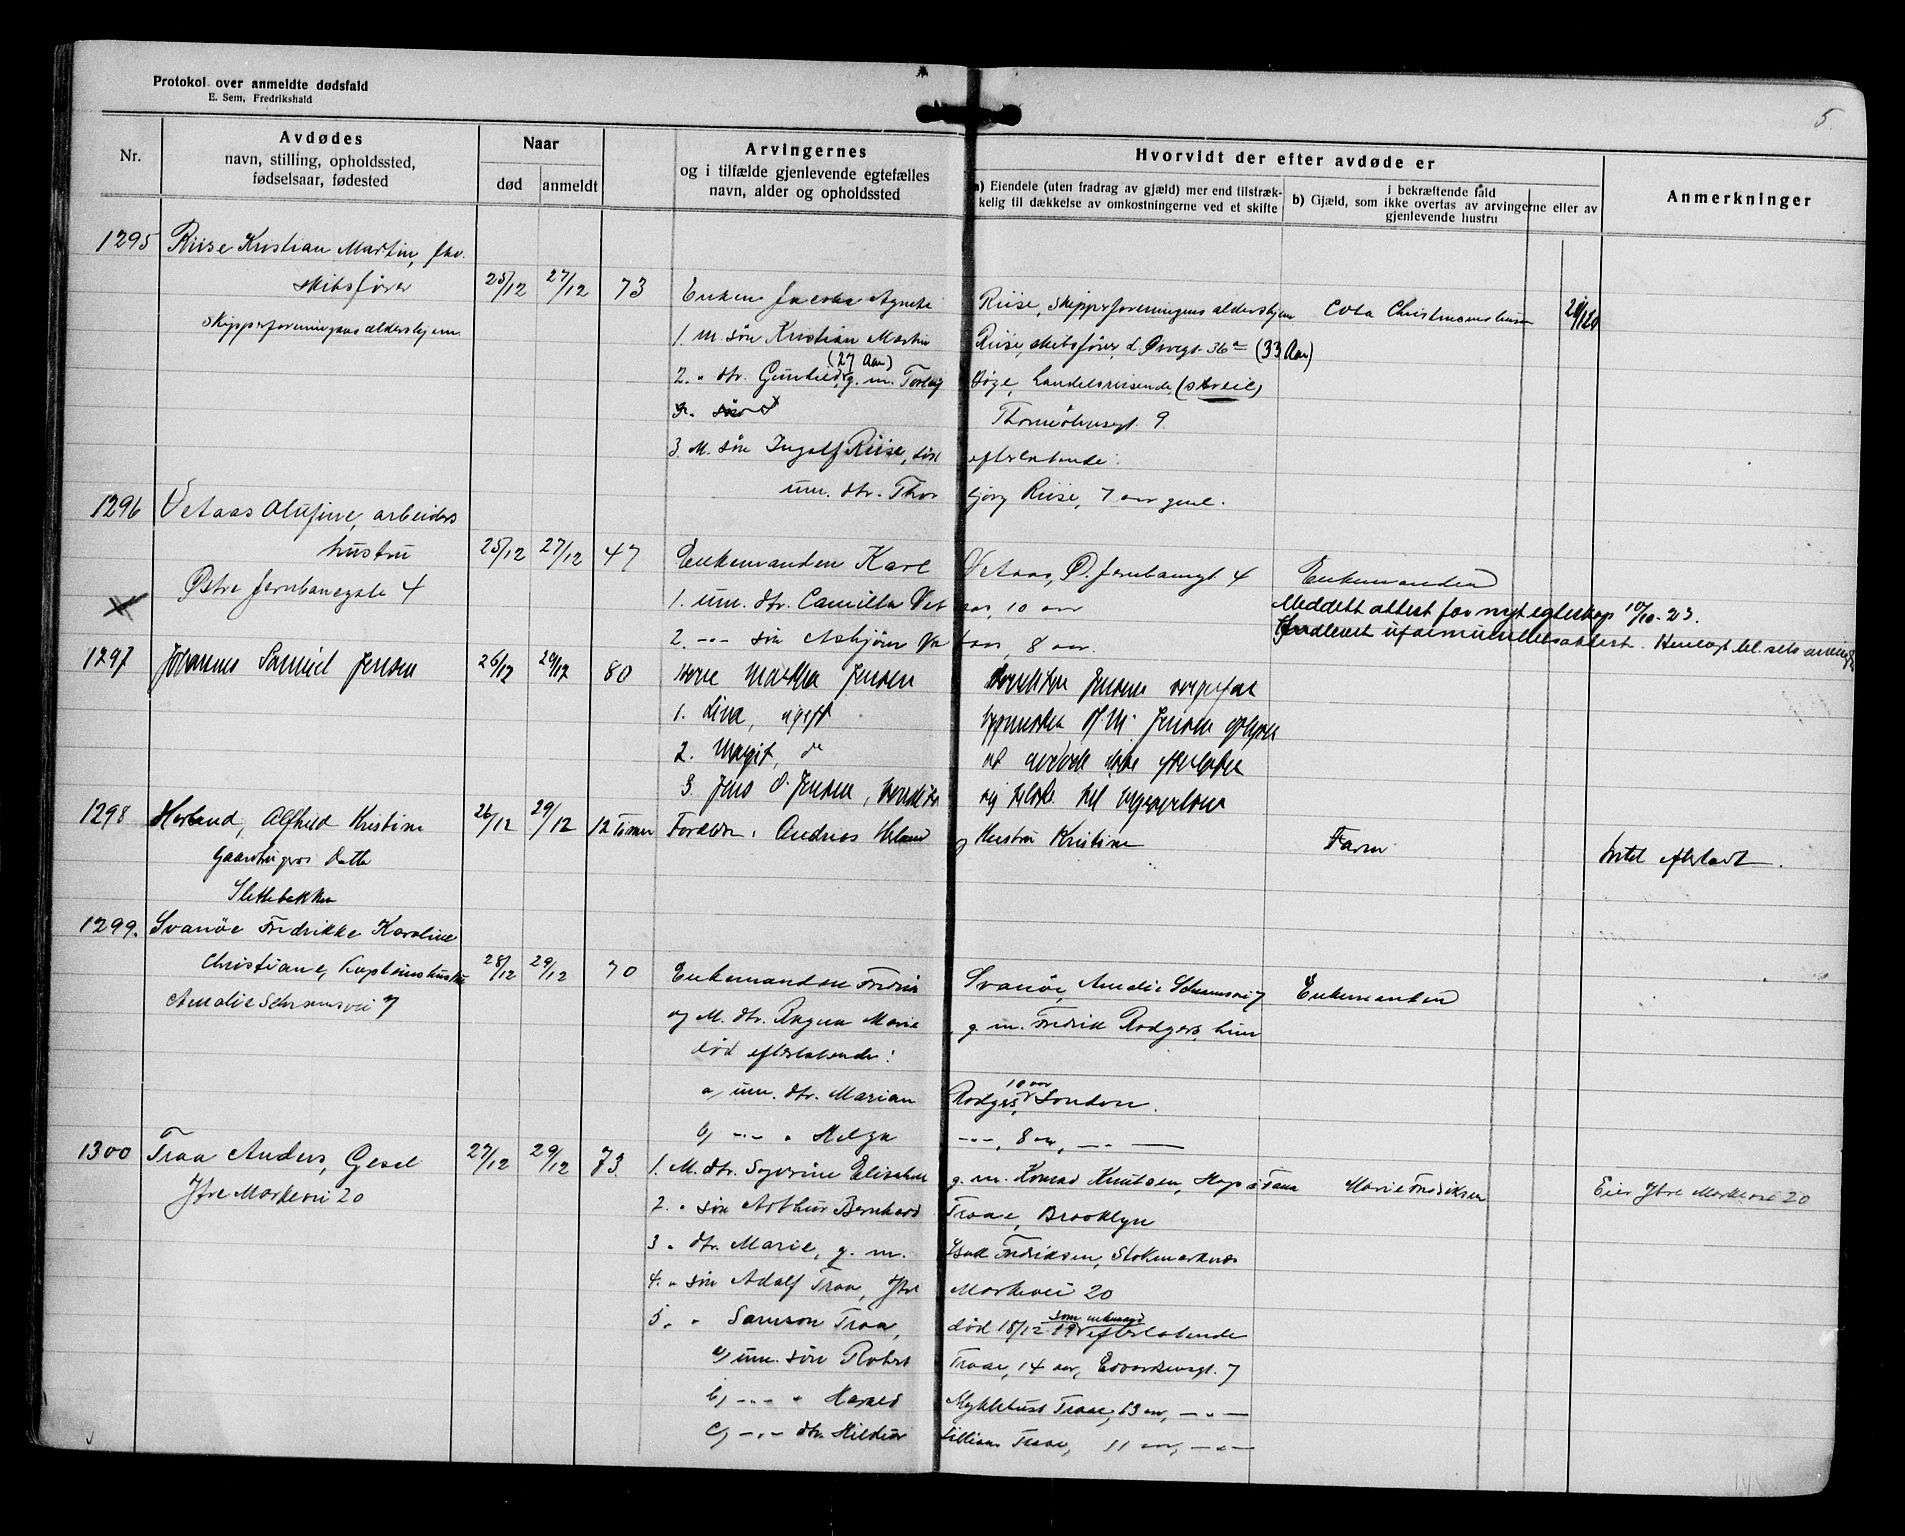 Protokol over anmeldte dødsfald
E. Sem, Fredrikshald
5
Nr.
Avdødes
navn, stilling, opholdssted,
fødselsaar, fødested
Naar
død
anmeldt
Arvingernes
og i tilfælde gjenlevende egtefælles
navn, alder og opholdssted
Hvorvidt der efter avdøde er
a) Eiendele (uten fradrag av gjæld) mer end tilstræk-
kelig til dækkelse av omkostningerne ved et skifte
b) Gjæld, som i bekræftende fald
ikke overtas av arvingerne eller av
gjenlevende hustru
Anmerkninger
1295 Riise Kristian Martin, fhv.
skibsfører 25/12 27/12 73 Enken Jacoba Agnete Riise, skipperforeningens aldershjem
skipperforeningens aldershjem
1. M. søn Kristian Martin Riise, skibsfører, d. Øvregt. 36a (33 Aar)
(27 Aar)
2. " dtr. Gunhild, g. m. Torleif Bøge, handelsreisende,
Thormøhlensgt 9
3. M. søn Ingolf Riise, død efterlatende:
um. dtr. Thorbjørg Riise, 7 aar gml.
1296 Vetaas Olufine, arbeiders
hustru 25/12 27/12 47 Enkemanden Karl Vetaas, Ø. Jernbanegt. 4 Enkemanden
Østre Jernbanegate 4 1. um. dtr. Camilla Vetaas, 10 aar Meddelt attest for nyt egteskap 10/10-23.
2. -"- søn Asbjørn Vetaas, 8 aar.
1297 Johannes Samuel Jensen 26/12 29/12 80 Marthea Jensen
1. Lina, ugift
2. Margit, do
3. Jens O. Jensen,
1298 Horland, Alfhild Kristine 26/12 29/12 12 Timer Forældre: Andreas Horland og Hustru Kristine Farm Intet efterladt.
Gaardbrugers Datter
Slettebakken
1299. Svanøe Fredrikke Karoline
Christiane, Kapteinshustru 28/12 29/12 70 Enkemanden Fredrik Svanøe, Amalie Schramsvei 7 Enkemanden
Amalie Schramsvei 7
og M. dtr. Ragna Marie, g. m. Fredrik Rodgers, hun
død efterlatende:
a) um. dtr. Marian Rodgers, 10 aar London.
b) -"- " Helga -"-, 8 aar, -"-
1300 Traa Anders, Gesel 27/12 29/12 73. 1. M. dtr. Severine Elisabeth g. m. Konrad Knutsen, Hop i Fana Marie Fredriksen Eier Ytre Markevei 20
Ytre Markevei 20
2. " søn Arthur Bernhard Traae, Brooklyn
3. " dtr. Marie, g. m. Fredriksen, Stokmarknes
4. " søn Adolf Traa, Ytre Markevei 20
5. " " Samson Traa, død 18/12 19 som enkemand efterlatende
a) um. søn Robert Traae, 14 aar, Edvardsensgt. 7
b) -"- " Harald Myklebust Traae, 13 aar, -"-
c) -"- dtr. Hildur Lillian Traae, 11 aar, -"-